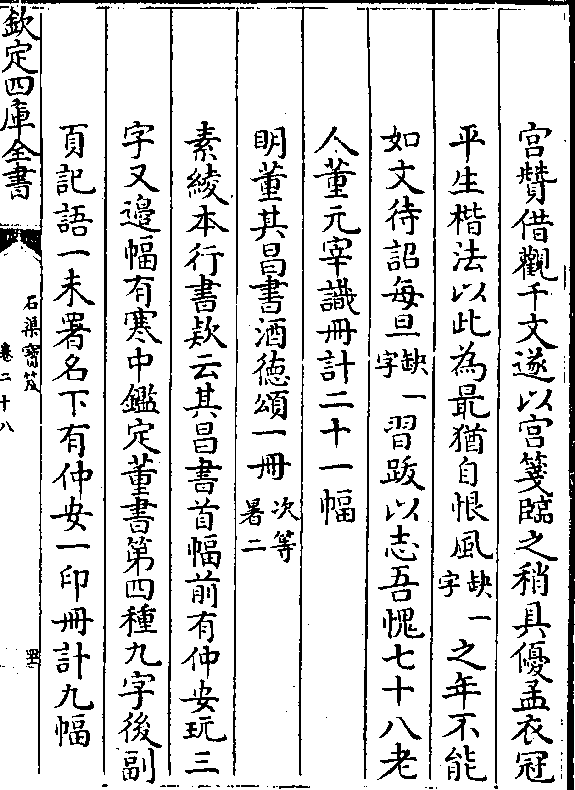 宫贊借觀千文遂以宫箋臨之稍具優孟衣冠
平生楷法以此為最猶自恨風缺一字之年不能
如文待詔每旦缺一字習跋以志吾愧七十八老
人董元宰識冊計二十一幅
明董其昌書酒徳頌一冊次等暑二
素綾本行書欵云其昌書首幅前有仲安玩三
字又邉幅有寒中鑑定董書第四種九字後副
頁記語一未署名下有仲安一印冊計九幅
欽定四庫全書
石渠寳笈
卷二十八